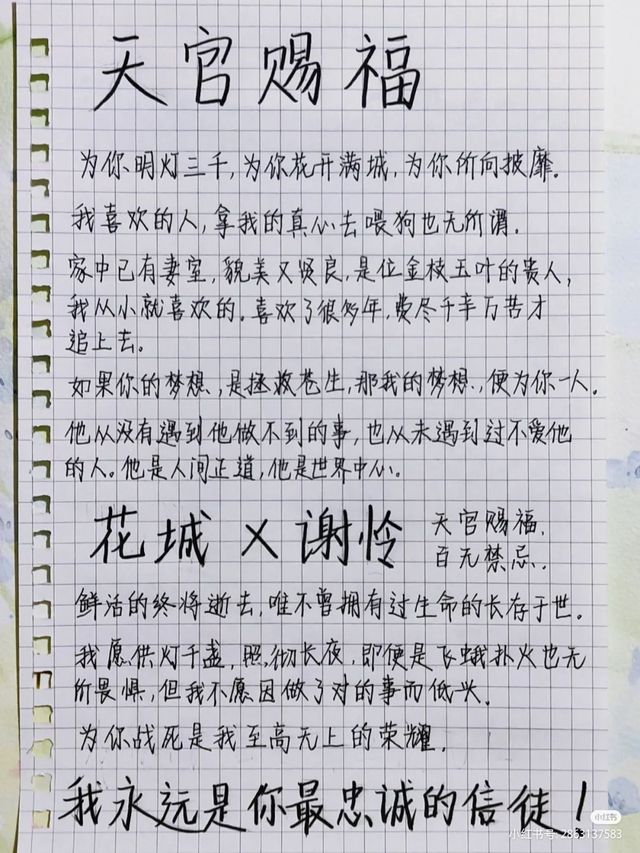 天官赐福
为你明灯三千,为你花开满城,为你所向披靡。
我喜欢的人,拿我的真心去喂狗也无所谓.
家中已有妻室,貌美又贤良,是位金枝玉叶的贵人,
我从小就喜欢的.喜欢了很多年,费尽千辛万苦才
追上去。
如果你的梦想,是拯救苍生,那我的梦想,便为你一人.
他从没有遇到他做不到的事,也从未遇到过不爱他
的人.他是人间正道,他是世界中心.
花城 × 谢怜
天官赐福.
百无禁忌.
鲜活的终将逝去,唯不曾拥有过生命的长存于世.
我愿供灯千盏,照彻长夜,即便是飞蛾扑火也无
所畏惧,但我不愿因做了对的事而低头.
为你战死是我至高无上的荣耀.
我永远是你最忠诚的信徒!
小红书
小红书号:2863137583